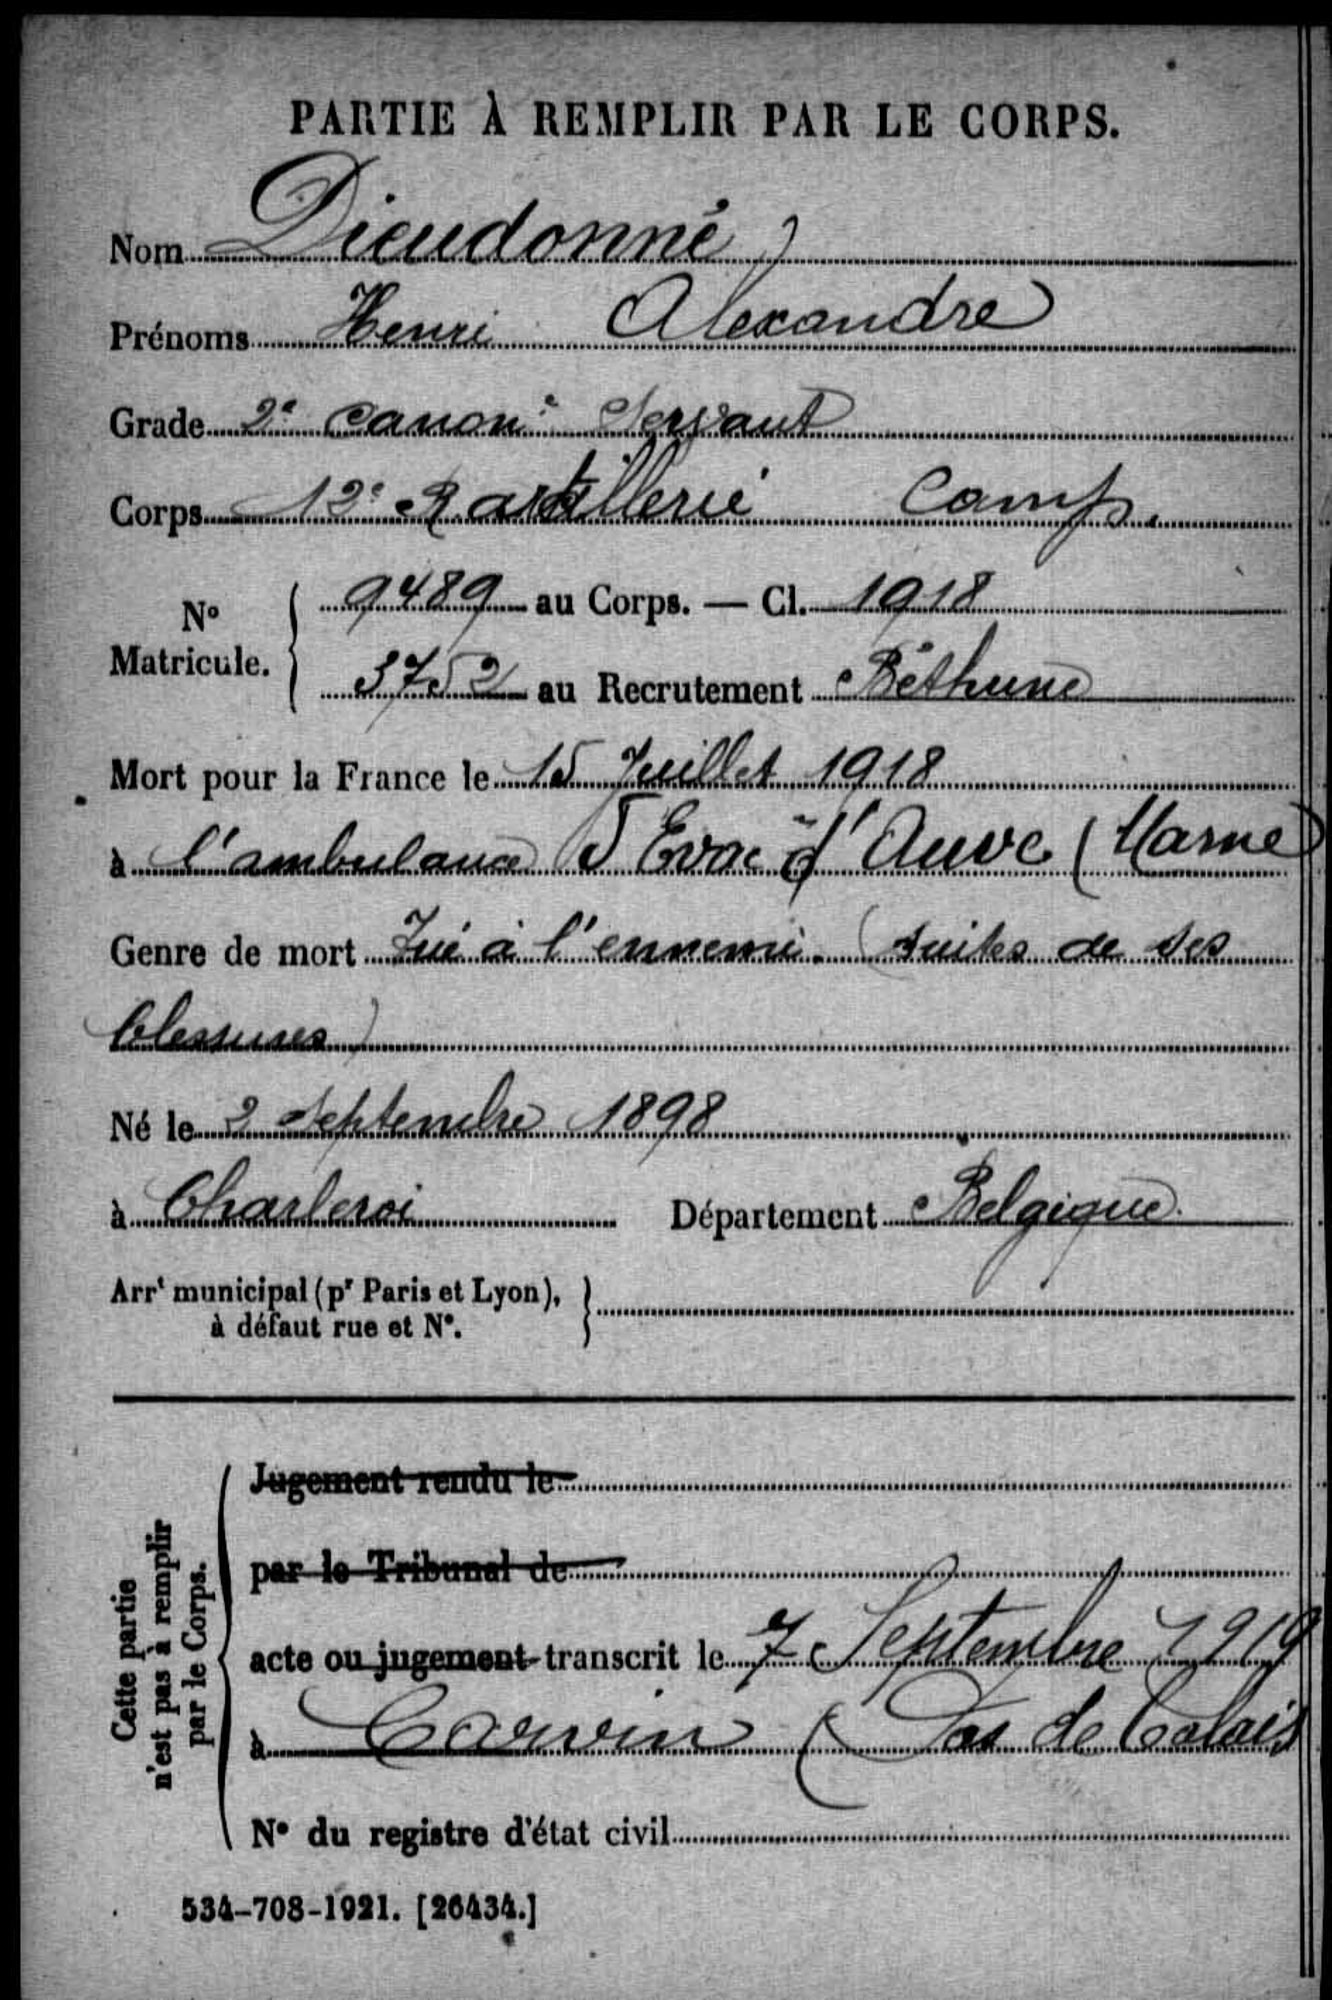 PARTIE À REMPLIR PAR LE CORPS.
Nom Dieudonné
Prénoms Henri Alexandre
Grade 2e canonr Servant
Corps 12e R artillerie Camp.
No Matricule. { 9489 au Corps. — Cl. 1918
3752 au Recrutement Béthune
Mort pour la France le 15 Juillet 1918
à l'ambulance Evac d'Auve (Marne
Genre de mort Tué à l'ennemi. (suites de ses
blessures)
Né le 2 Septembre 1898
à Charleroi Département Belgique
Arrt municipal (pr Paris et Lyon), }
à défaut rue et No.
Cette partie
n'est pas à remplir
par le Corps.
Jugement rendu le
par le Tribunal de
acte ou jugement transcrit le 7 Septembre 1919
à Carvin (Pas de Calais
No du registre d'état civil
534-708-1921. [26434.]